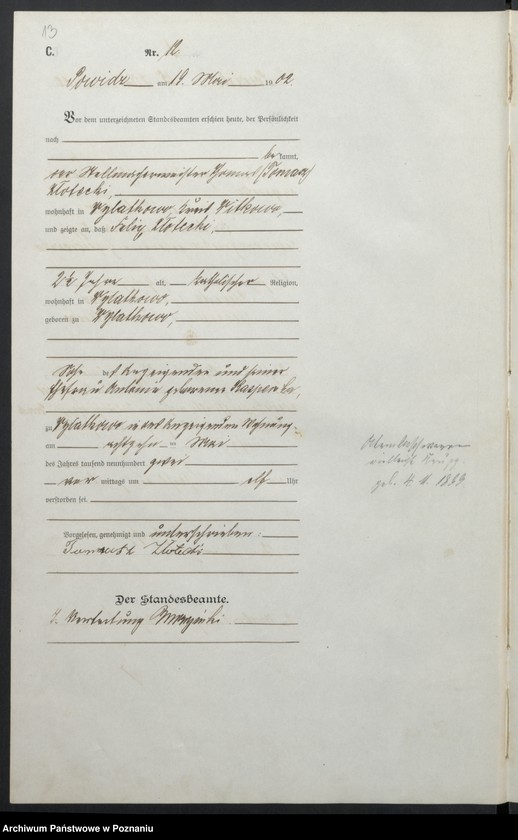 13
C.
Nr. 12
Powidz am 19. Mai 1902
Vor dem unterzeichneten Standesbeamten erschien heute, der Persönlichkeit
nach
bekannt,
der Stellmachermeister Thomas (Tomasz)
Zlotecki,
wohnhaft in Wylatkowo, Kreis Witkowo,
und zeigte an, daß Felix Zlotecki,
Jahre alt, katholischer Religion,
wohnhaft in Wylatkowo,
geboren zu Wylatkowo,
Sohn des Anzeigenden und seiner
Ehefrau Antonie geborenen
zu Wylatkowo in des Anzeigenden Wohnung
am achtzehnten Mai
des Jahres tausend neunhundert zwei
vor mittags um elf Uhr
verstorben sei.
Vorgelesen, genehmigt und unterschrieben:
Tomasz Zlotecki
Der Standesbeamte.
In Vertretung
geb. 4. V. 1883
Archiwum Państwowe w Poznaniu